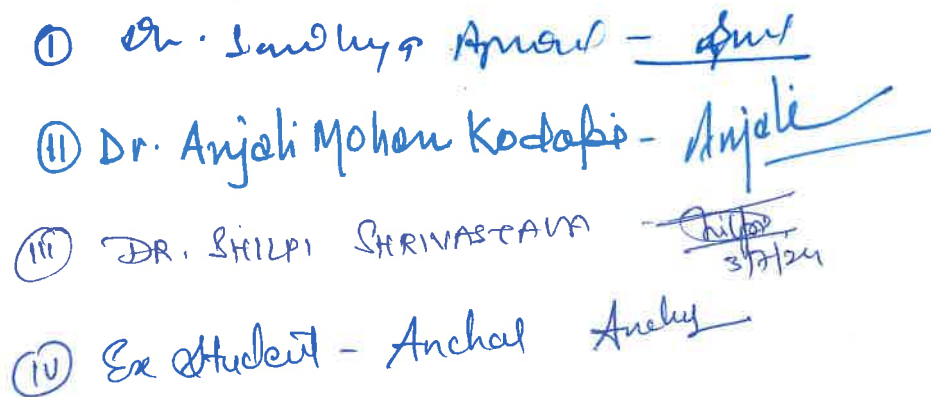 ① Dr. Sandhya
⑪ Dr. Anjali Mohan Kodapi - Anjali
⑪⑪ DR. SHILPI SHRIVASTAVA - Shilpi
3/7/24
⑩ Ex Student - Anchal